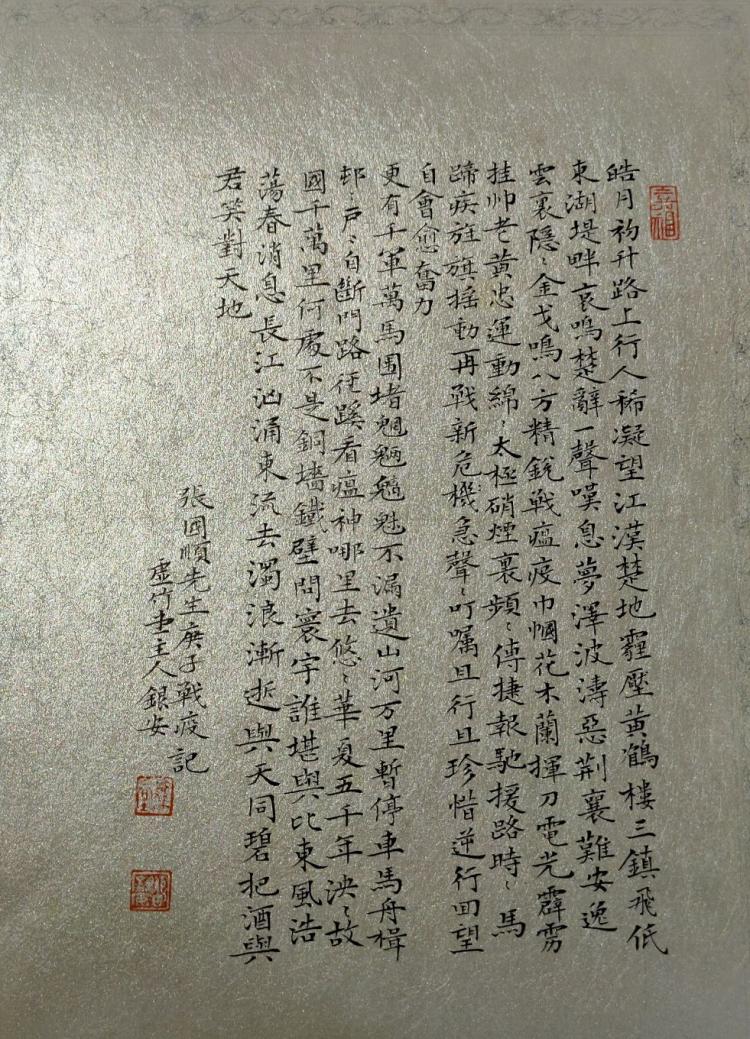 皓月初升路上行人稀凝望江漢楚地霾壓黃鶴樓三鎮飛低
東湖堤畔哀鳴楚辭一聲嘆息夢澤波濤惡荆襄難安逸
雲裏隱〻金戈鳴八方精銳戰瘟疫巾幗花木蘭揮刀電光霹雳
挂帅老黃忠運動綿〻太極硝煙裏頻〻傳捷報馳援路時〻馬
蹄疾旌旗揺動再戰新危機急聲〻叮嘱且行且珍惜逆行回望
自會愈奮力
更有千軍萬馬围堵魍魎魑魅不漏遺山河万里暫停車馬舟楫
邨〻户〻自斷門路徑蹊看瘟神哪里去悠〻華夏五千年泱〻故
國千萬里何處不是銅墙鐵壁問寰宇誰堪與比東風浩
蕩春消息長江汹涌東流去濁浪漸逝與天同碧把酒與
君笑對天地
張國順先生庚子戰疫記
虚竹堂主人銀安